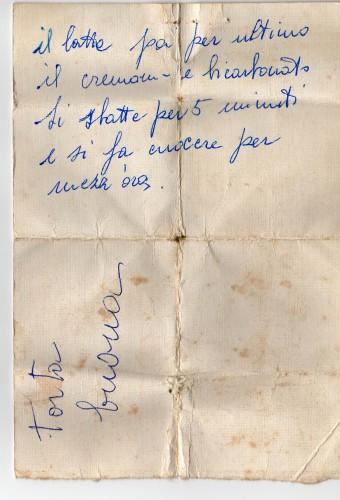 il latte poi per ultimo
il cremom - e bicarbonato
Si sbatte per 5 minuti
e si fa cuocere per
mezza ora.
torta
buona